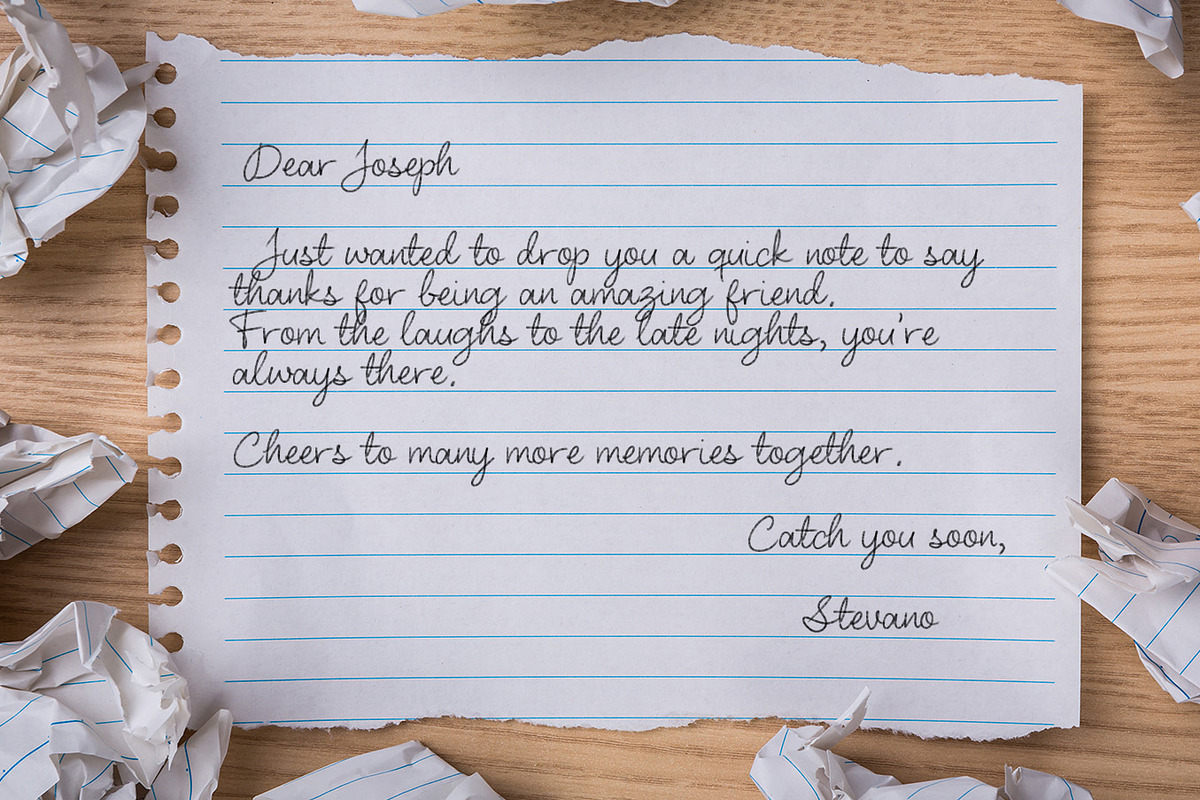 Dear Joseph
Just wanted to drop you a quick note to say
thanks for being an amazing friend.
From the laughs to the late nights, you're
always there.
Cheers to many more memories together.
Catch you soon,
Stevano